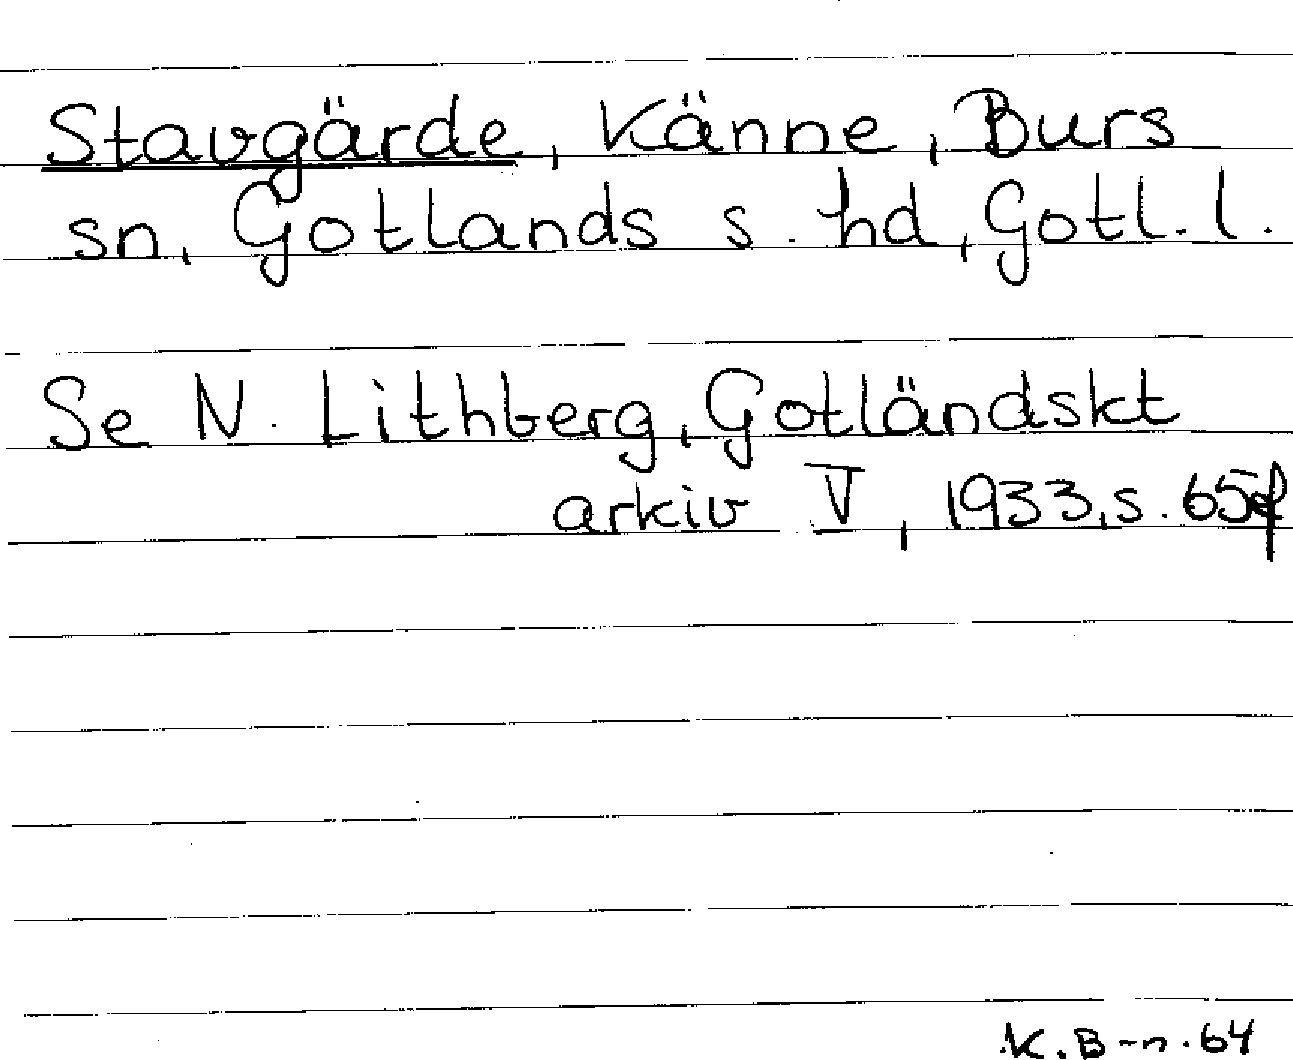 Stavgärde, Känne, Burs
sn, Gotlands s. hd, Gotl. l.
Se N. Lithberg, Gotländskt
arkiv V, 1933, s. 65f
K. B-n. 64